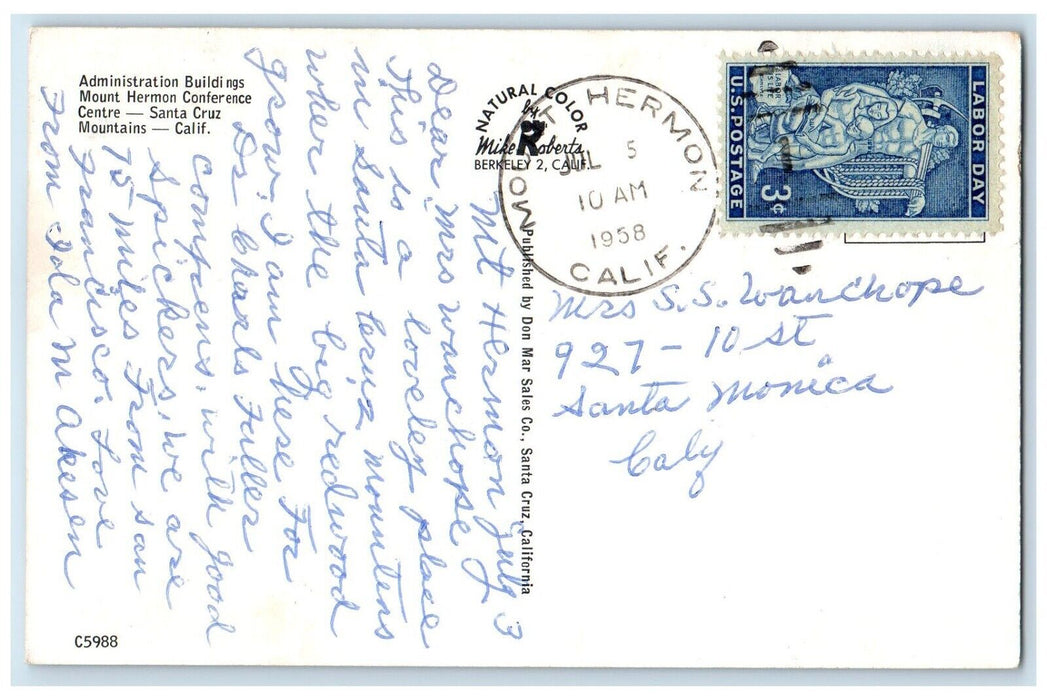 Administration Buildings
Mount Hermon Conference
Centre — Santa Cruz
Mountains — Calif.
NATURAL COLOR
by
Mike Roberts
BERKELEY 2, CALIF.
Published by Don Mar Sales Co., Santa Cruz, California
C5988
MOUNT HERMON
JUL 5
10 AM
1958
CALIF.
LABOR DAY
U.S. POSTAGE
3¢
Mt Hermon July 3
Dear Mrs Wanchope
This is a loveley place
in Santa Cruz mountens
wher the big redwood
grow. I am hese For
Dr Charls Fuller
comfrens, with good
Spickers, we are
75 miles From san
Francisco. Love
From Iola M Akesen
Mrs S. S. Wanchope
927 - 10 St
Santa Monica
Caly